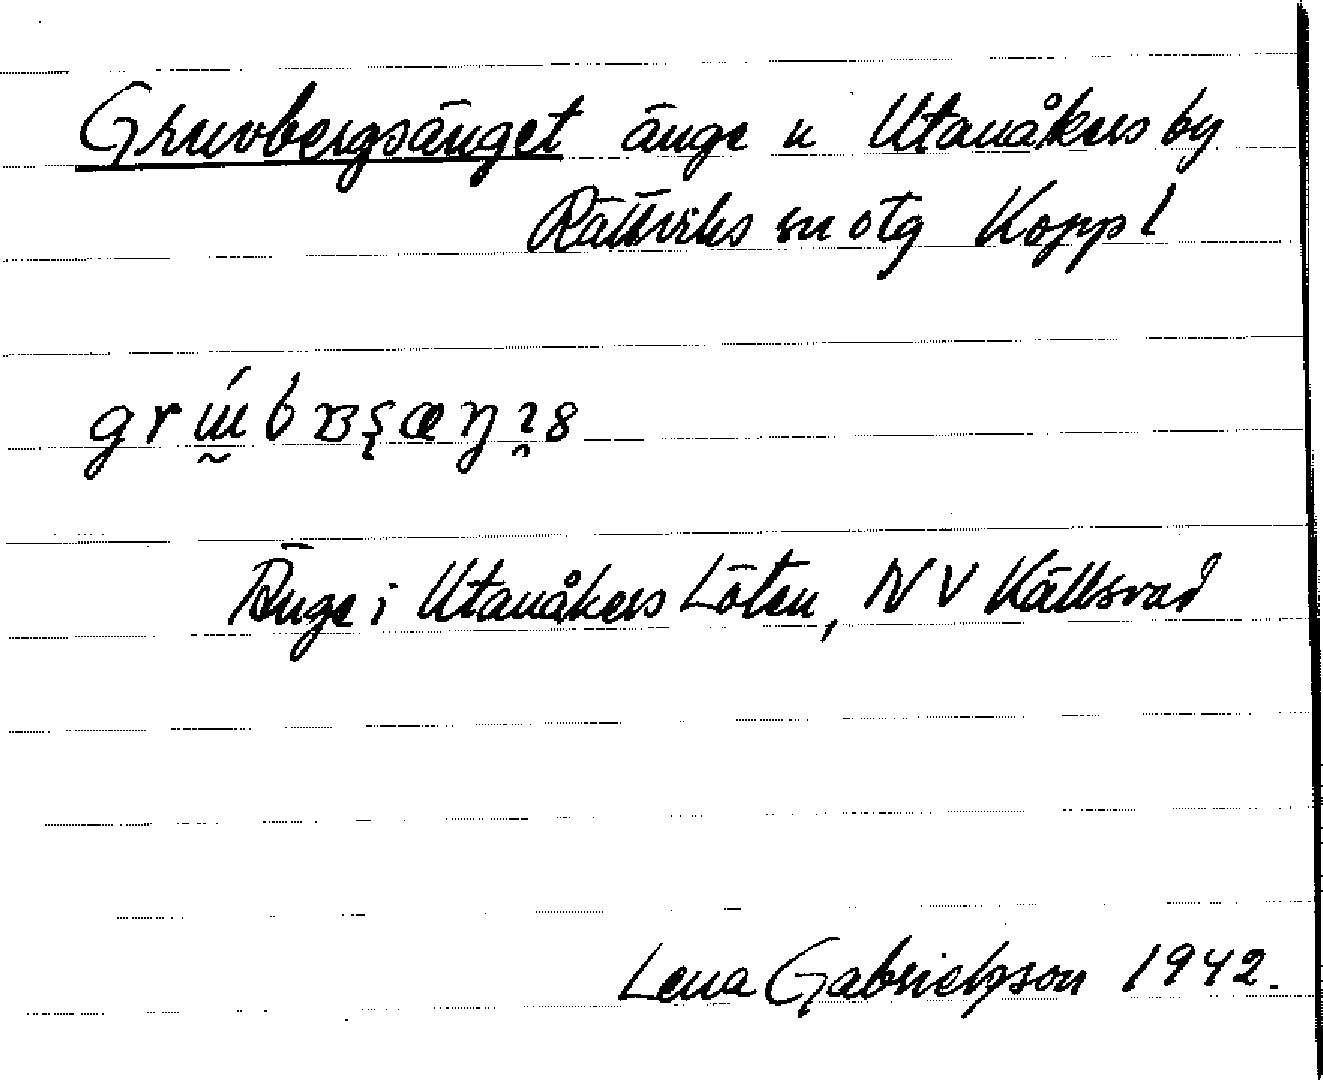 Gruvbergsänget änge u Utanåkers by
Rättviks sn otg Koppl
Änge i Utanåkers Löten, NV Källsvad
Lena Gabrielsson 1942.